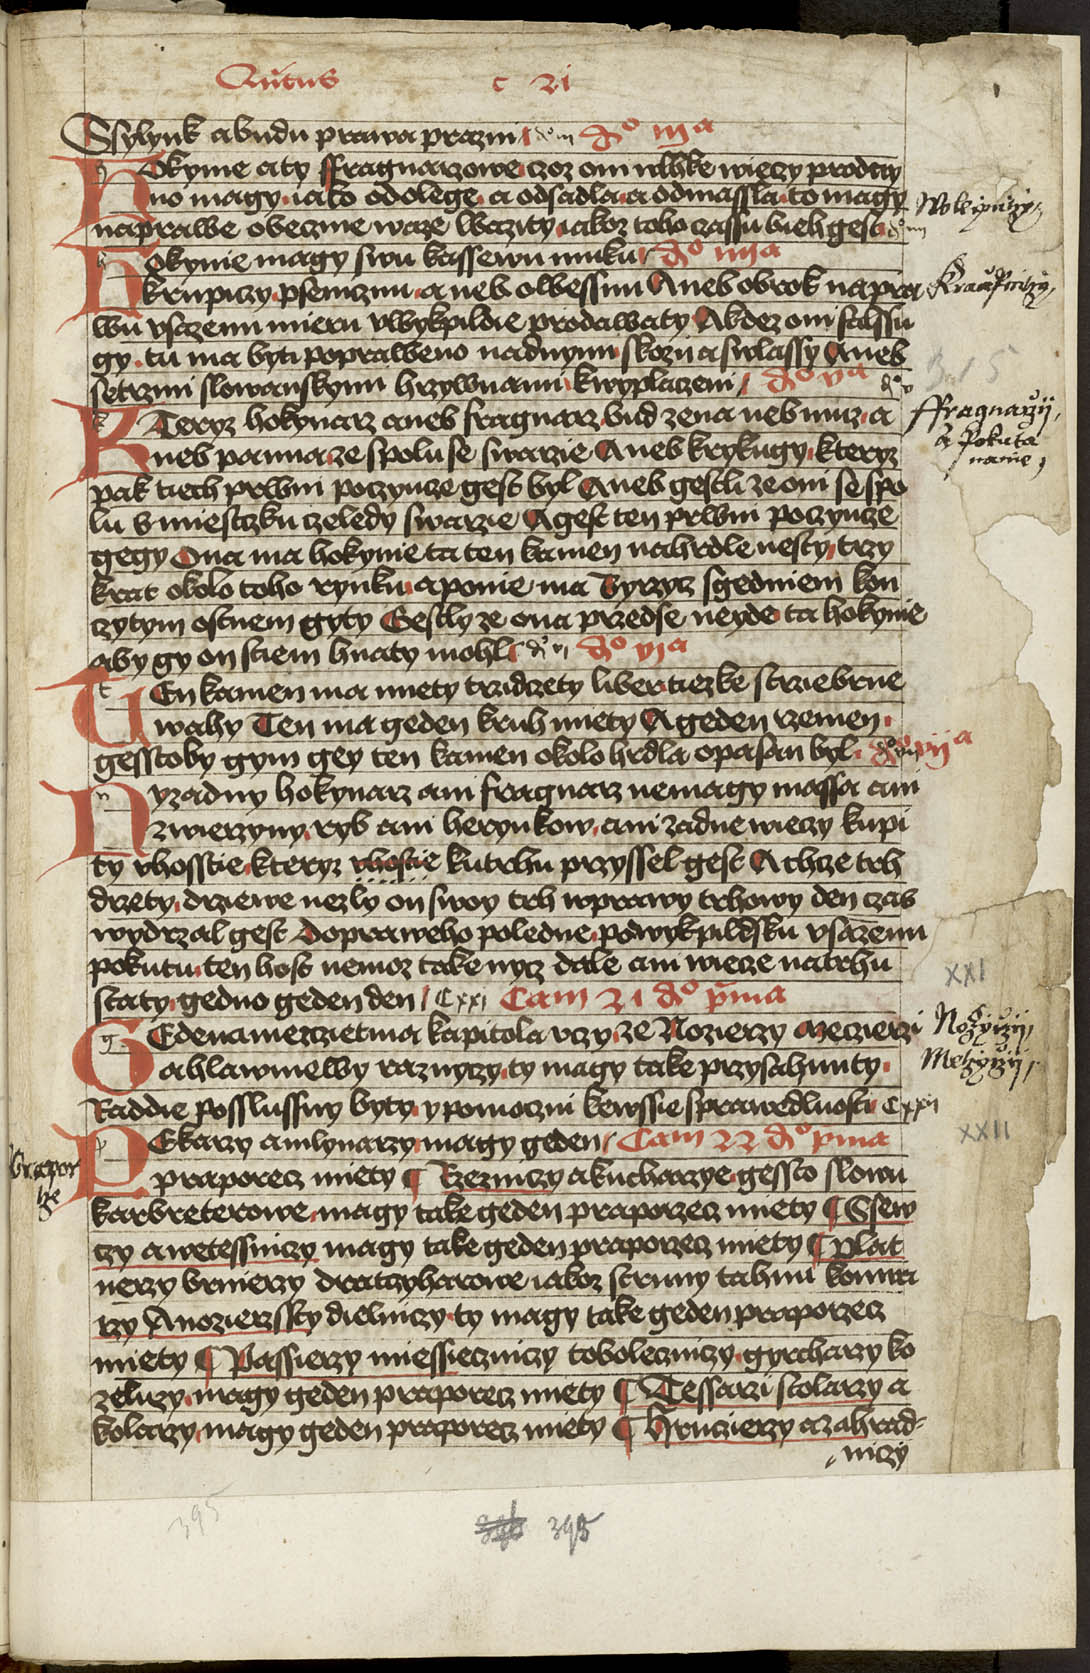 Quintus c 21
Ssylynk a budu prawa prazni d° iii d° iii a
h Okynie a ty ffragnarzowe czoz oni wlhke wieczy prodaw
no magy iako od olege a od sadla a od massla to magy
naprawe obeczne waze wazity iakoz toho czassu bieh gest d° iiii
h okynie magy swu kassewnu miku d° iiii a
krupiczy psenicznu aneb owessnu Aneb obrok napra
wu vsazenu mieru vwykpildie prodawaty A kdez oni falssu
gy tu ma byti popraweno nad nymi skozu a s wlassy Aneb
se trzmi slowanskymi hrzywnami kwyplaczeni d° v a d° v
k Teryz hokynarz aneb fragnarz bud zena neb muz a
neb panna ze spolu se swarzie Aneb krykugy kteryz
pak tiech prwni poczyncze gest byl Aneb gestli ze oni se spo
lu v miestczku czeledy swarzie A gest ten prwni poczyncze
gegy Ona ma hokynie ta ten kamen na hrdle nesty trzy
krat okolo toho rynku a po nie ma Byrzycz s gedniem kon
czytym ostnem gyty Gestly ze ona przedse neyde ta hokynie
aby gy on stiem hnaty mohl d° vi d° vi a
t En kamen ma miety trzidczety liber tiezke strziebrne
wahy Ten ma geden kruh miety A geden rzemen
gesstoby gym gey ten kamen okolo hrdla opasan byl d° vii d° vii a
n yzadny hokynarz ani fragnarz nemagy massa ani
zwierzyny ryb ani herynkow ani zadne wieczy kupi
ty v hosstie kteryz v hostie kutrhu przyssel gest A chze trh
drzety drziewe nezly on swoy trh w prawy trhowy den czas
wydrzal gest Do praweho poledne pod wykpildsku vsazenu
pokutu ten host nemoz take nycz dale ani wiecze na trhu
staty gedno geden den Cxxi Cam 21 d° p̄ma
g Edenamezzietma kapitola vczy ze Nozierzy Meczierzi
a hlawniewy raznyczy ty magy take przysahnuty
Raddie posslussny byty y pomoczni kewssie sprawedlnosti Cxxii
p Ekarzy a mlynarzy magy geden Cam 22 d° p̄ma
praporecz miety ¶ Rzezniczy a kucharzye gessto slowu
karbreterowe magy take geden praporzecz miety ¶ Ssew
czy a wetessniczy magy take geden praporzecz miety ¶ Plat
nerzy brnierzy dratczyharowe iakoz struny tahnu konwa
rzy A nozierzssty dielniczy ty magy take geden praporzecz
miety ¶ Passierzy miessieczniczy toboleczniczy gyrcharzy ko
zeluzy magy geden praporecz miety ¶ Tessarzi stolarzy a
kolarzy magy geden praporecz miety ¶ Hrnczierzy a zahrad-
niczy
Wolegnicy
Kraupniczy
Bel 5
ffragnarzij
a pokuta
na nie
XXI
Nozyrzij
Meczyrzij
XXII
Brapor
cze
395
395